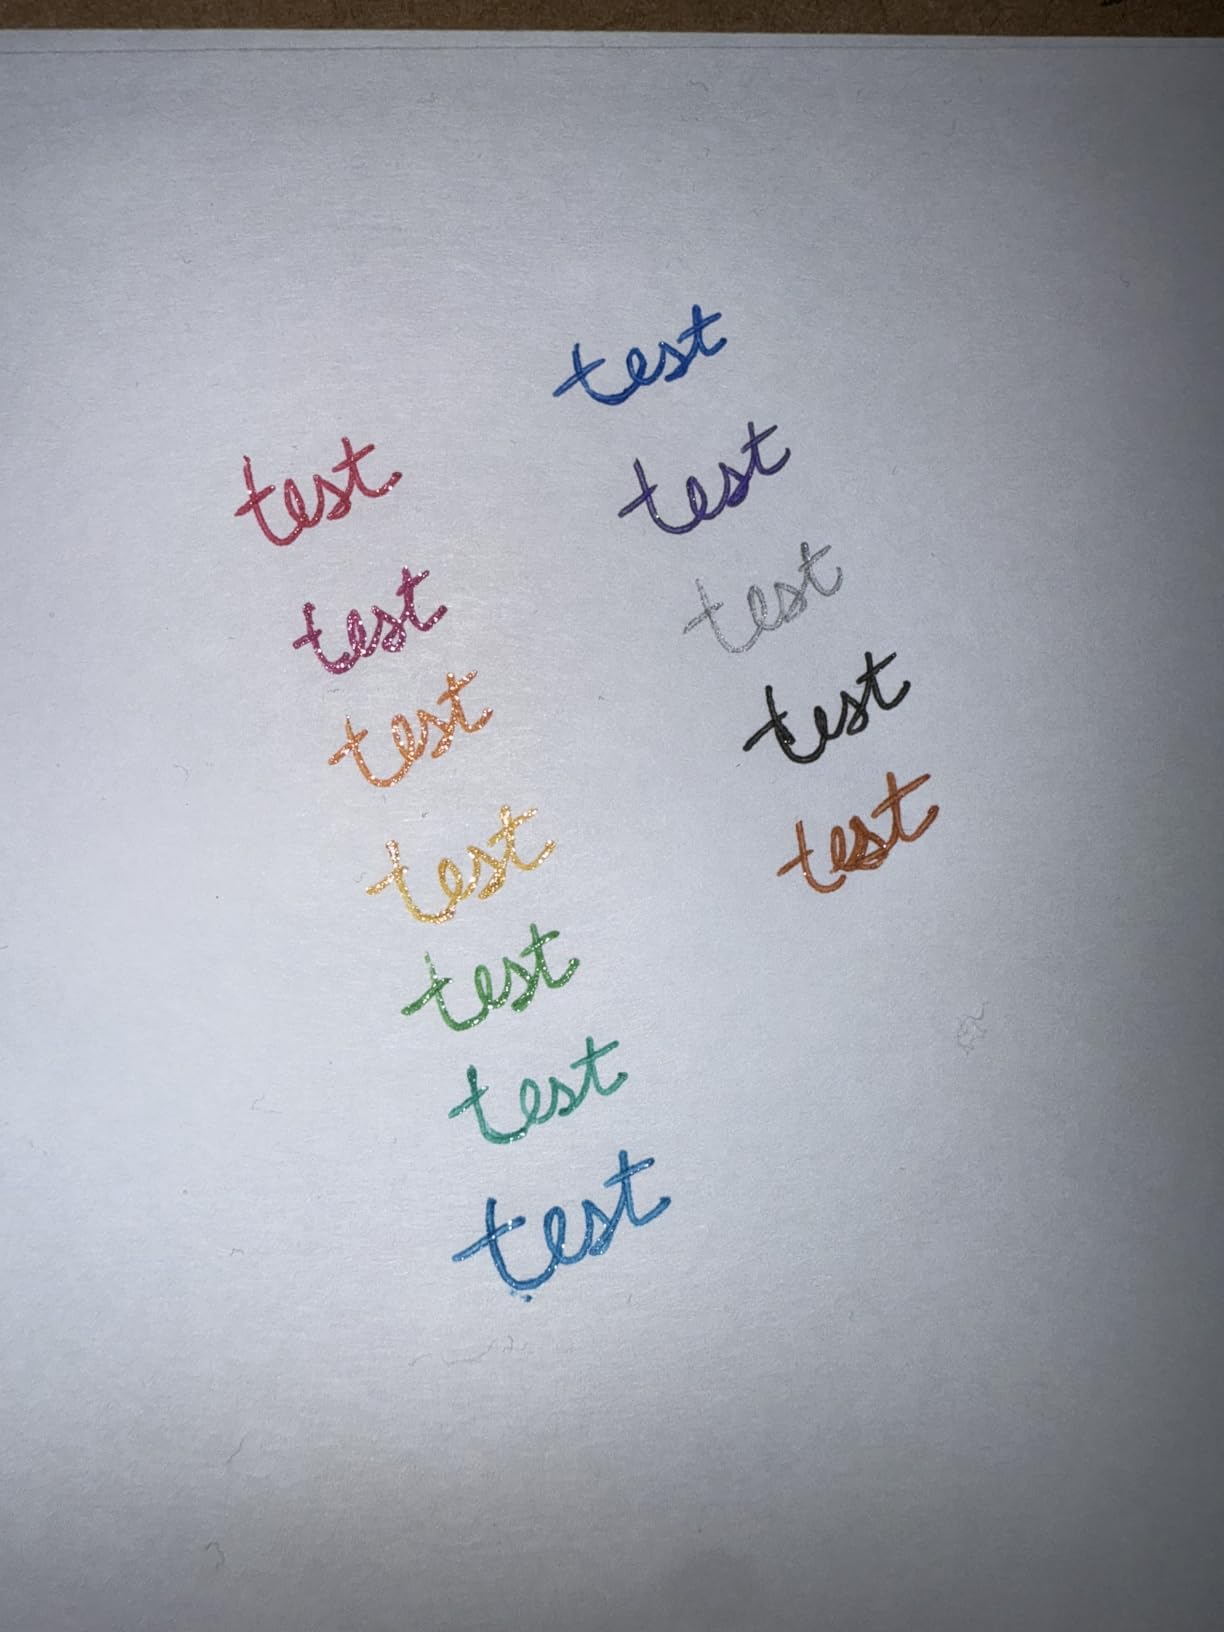 test
test
test
test
test
test
test
test
test
test
test
test